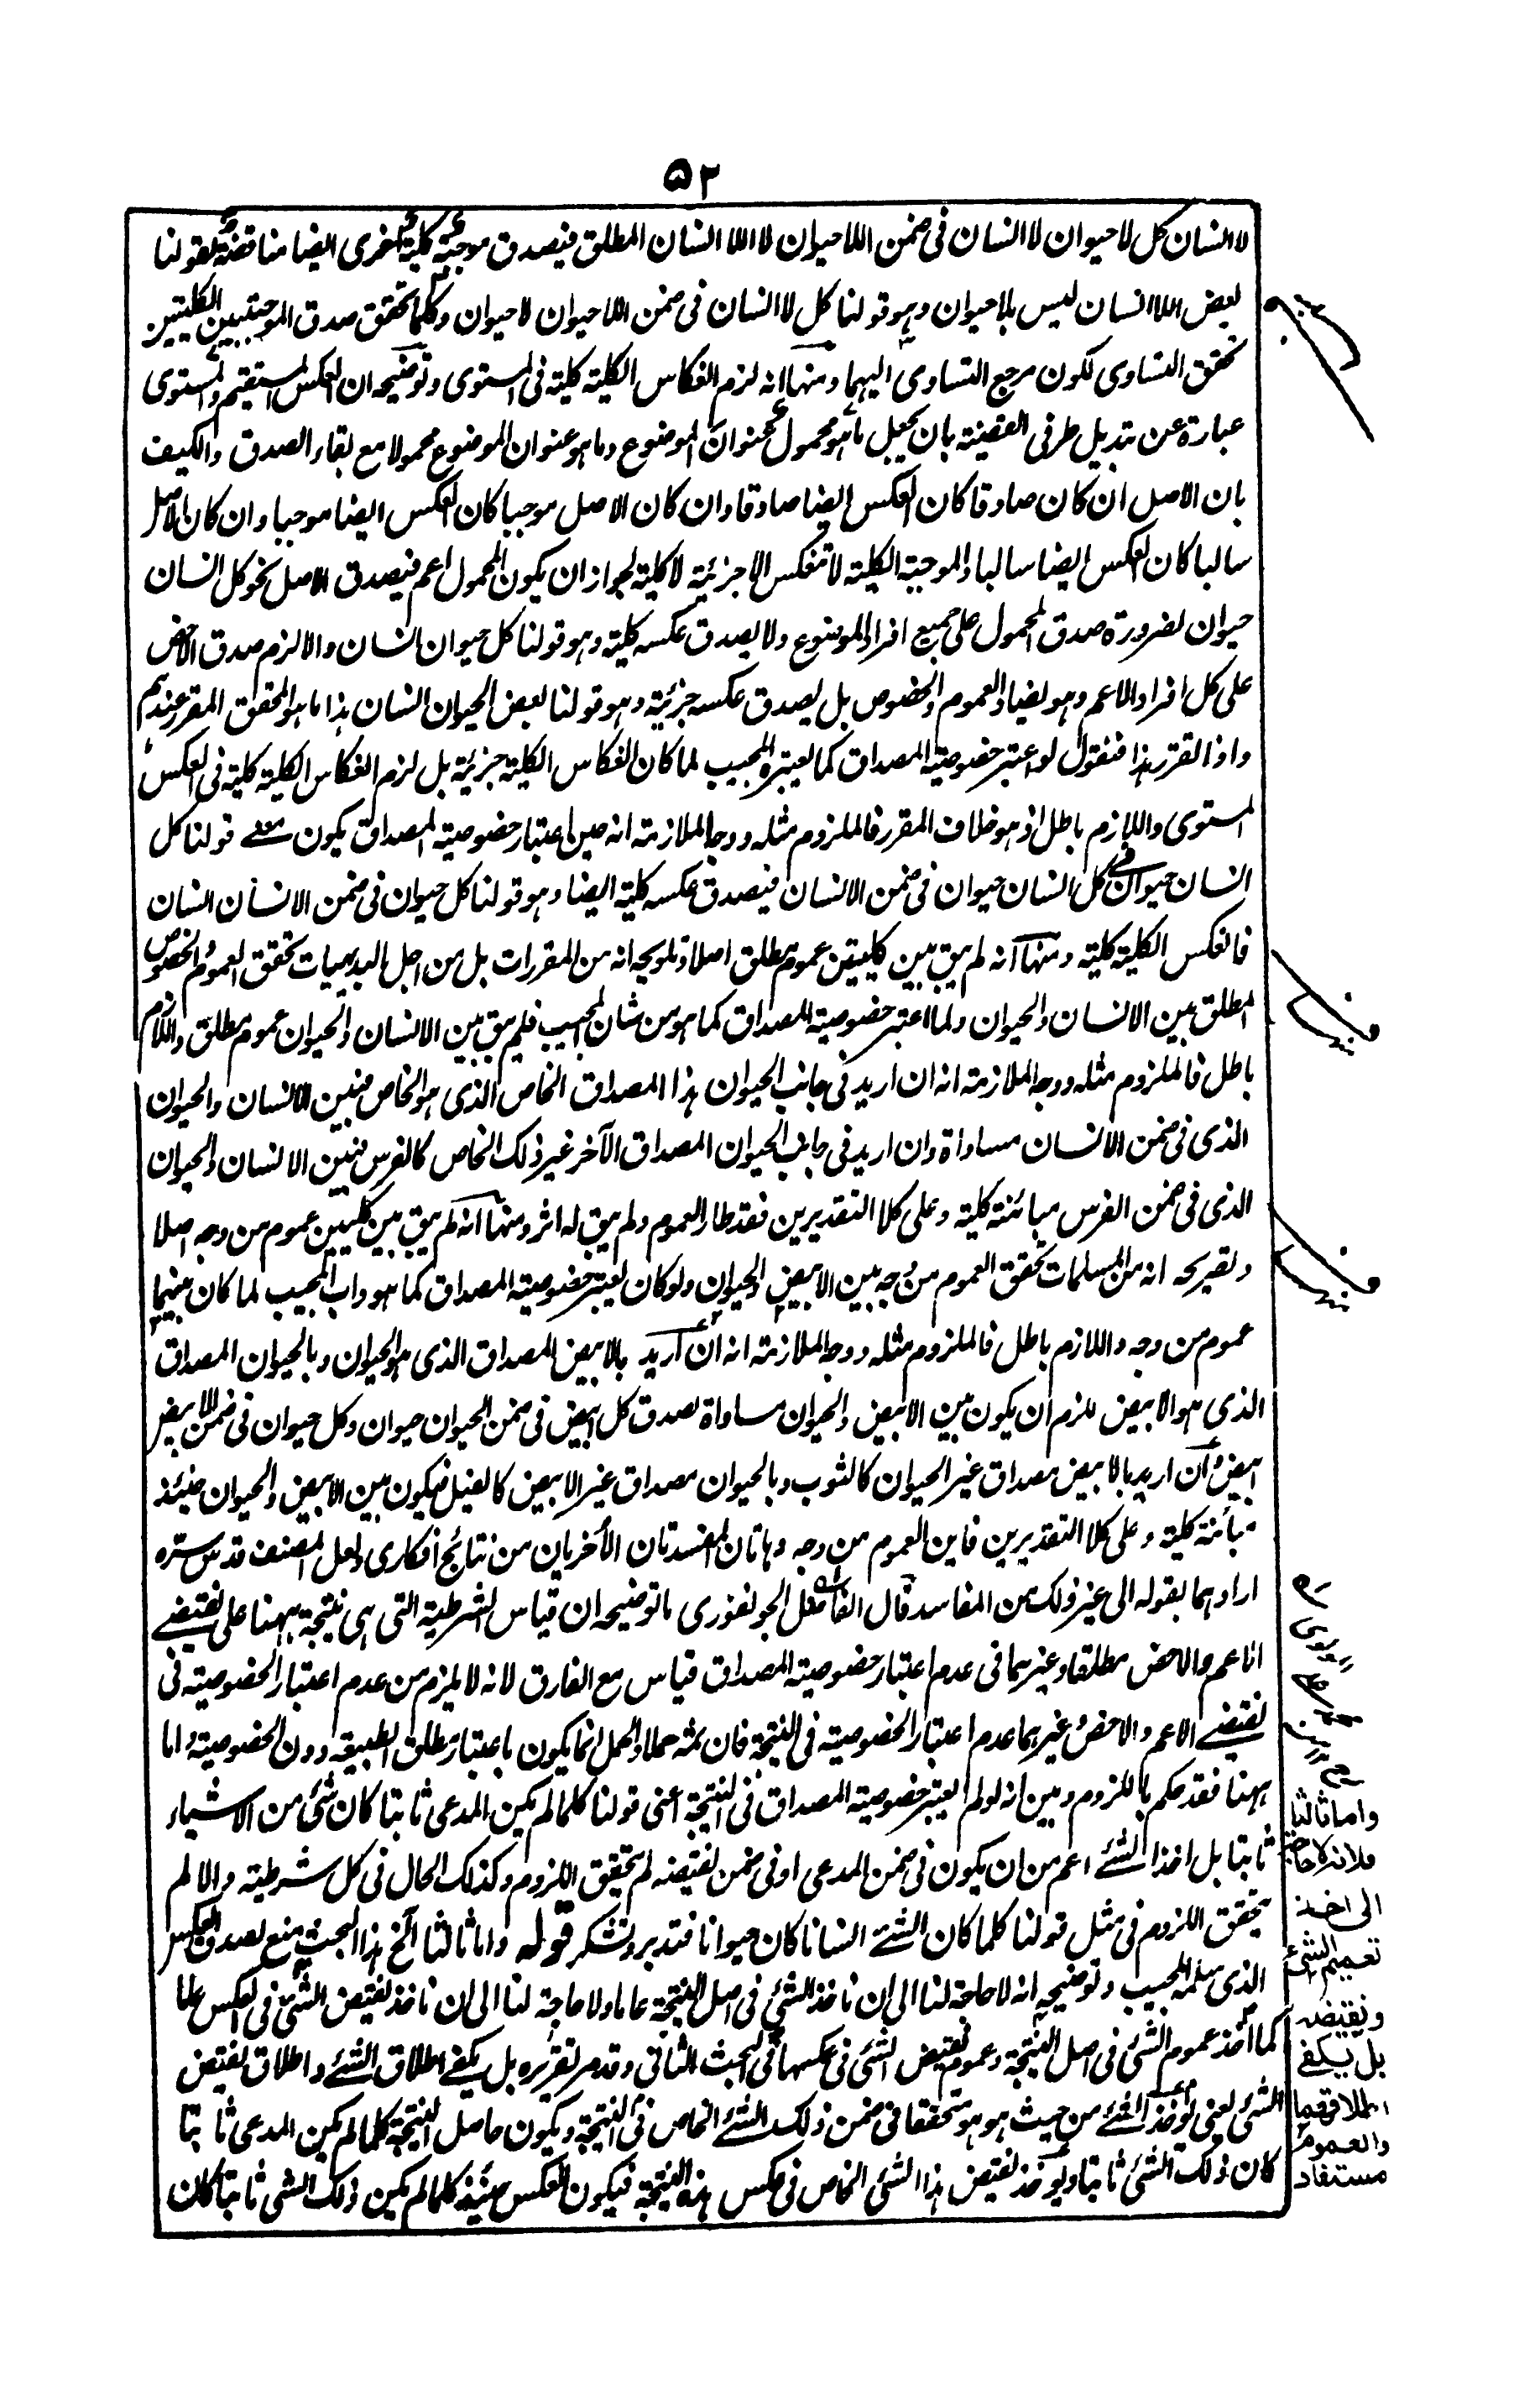 ۵۲
لا انسان كل لا حيوان لا انسان فى ضمن اللا حيوان لا اللا انسان المطلق فيصدق موجبة كلية اخرى ايضا مناقضة لقولنا
بعض اللا انسان ليس بلا حيوان وهو قولنا كل لا انسان فى ضمن اللا حيوان لا حيوان وكلما تحقق صدق الموجبتين الكليتين
تحقق التساوى لكون مرجع التساوى اليهما ومنها انه لزم انعكاس الكلية كلية فى المستوى وتوضيحه ان العكس المستقيم والمستوى
عبارة عن تبديل طرفى القضية بان يجعل ما هو محمول عنوان الموضوع وما هو عنوان الموضوع محمولا مع بقاء الصدق والكيف
بان الاصل ان كان صادقا كان العكس ايضا صادقا وان كان الاصل موجبا كان العكس ايضا موجبا وان كان الاصل
سالبا كان العكس ايضا سالبا والموجبة الكلية لا تنعكس الا جزئية لا كلية لجواز ان يكون المحمول اعم فيصدق الاصل نحو كل انسان
حيوان لضرورة صدق المحمول على جميع افراد الموضوع ولا يصدق عكسه كلية وهو قولنا كل حيوان انسان والا لزم صدق الاخص
على كل افراد الاعم وهو يضاد العموم والخصوص بل يصدق عكسه جزئية وهو قولنا بعض الحيوان انسان هذا ما هو المحقق المقرر عندهم
واذا تقرر هذا فنقول لو اعتبر خصوصية المصداق كما يعتبره المجيب لما كان انعكاس الكلية جزئية بل لزم انعكاس الكلية كلية فى العكس
المستوى واللازم باطل اذ هو خلاف المقرر فالملزوم مثله ووجه الملازمة انه حين اعتبار خصوصية المصداق يكون معنى قولنا كل
انسان حيوان كل انسان حيوان فى ضمن الانسان فيصدق عكسه كلية ايضا وهو قولنا كل حيوان فى ضمن الانسان انسان
فانعكس الكلية كلية ومنها انه لم يبق بين كليتين عموم مطلق اصلا وتلويحه انه من المقررات بل من اجل البديهيات تحقق العموم والخصوص
المطلق بين الانسان والحيوان ولما اعتبر خصوصية المصداق كما هو من شان المجيب فلم يبق بين الانسان والحيوان عموم مطلق واللازم
باطل فالملزوم مثله ووجه الملازمة انه ان اريد فى جانب الحيوان هذا المصداق الخاص الذى هو الخاص فبين الانسان والحيوان
الذى فى ضمن الانسان مساواة وان اريد فى جانب الحيوان المصداق الآخر غير ذلك الخاص كالفرس فبين الانسان والحيوان
الذى فى ضمن الفرس مبائنة كلية وعلى كلا التقديرين فقد طار العموم ولم يبق له اثر ومنها انه لم يبق بين كليين عموم من وجه اصلا
وتصريحه انه من المسلمات تحقق العموم من وجه بين الابيض والحيوان ولو كان يعتبر خصوصية المصداق كما هو داب المجيب لما كان بينهما
عموم من وجه واللازم باطل فالملزوم مثله ووجه الملازمة انه ان اريد بالابيض المصداق الذى هو الحيوان وبالحيوان المصداق
الذى هو الابيض للزم ان يكون بين الابيض والحيوان مساواة لصدق كل ابيض فى ضمن الحيوان حيوان وكل حيوان فى ضمن الابيض
ابيض وان اريد بالابيض مصداق غير الحيوان كالثوب وبالحيوان مصداق غير الابيض كالفيل فيكون بين الابيض والحيوان حينئذ
مبائنة كلية وعلى كلا التقديرين فاين العموم من وجه وهاتان المفسدتان الأخريان من نتائج افكارى ولعل المصنف قدس سره
ارادهما بقوله الى غير ذلك من المفاسد قال الفاضل الجونفورى ما توضيحه ان قياس الشرطية التى هى نتيجة ههنا على نقيضى
الاعم والاخص مطلقا وغيرهما فى عدم اعتبار خصوصية المصداق قياس مع الفارق لانه لا يلزم من عدم اعتبار الخصوصية فى
نقيضى الاعم والاخص وغيرهما عدم اعتبار الخصوصية فى النتيجة فان ثمه حملا والحمل انما يكون باعتبار مطلق الطبيعة دون الخصوصية واما
ههنا فقد حكم باللزوم وبين انه لو لم يعتبر خصوصية المصداق فى النتيجة اعنى قولنا كلما لم يكن المدعى ثابتا كان شئ من الاشياء
ثابتا بل اخذ الشئ اعم من ان يكون فى ضمن المدعى او فى ضمن نقيضه لم يتحقق اللزوم وكذلك الحال فى كل شرطية والا لم
يتحقق اللزوم فى مثل قولنا كلما كان الشئ انسانا كان حيوانا فتدبر وتشكر قوله واما ثالثا الخ هذا البحث منع لصدق العكس
الذى سلمه المجيب وتوضيحه انه لا حاجة لنا الى ان ناخذ الشئ فى اصل النتيجة عاما ولا حاجة لنا الى ان ناخذ نقيض الشئ فى العكس عاما
كما اخذ عموم الشئ فى اصل النتيجة وعموم نقيض الشئ فى عكسها فى البحث الثانى وقد مر تقريره بل يكفى اطلاق الشئ واطلاق نقيض
الشئ يعنى نوخذ الشئ من حيث هو هو متحققا فى ضمن ذلك الشئ الخاص فى النتيجة ويكون حاصل النتيجة كلما لم يكن المدعى ثابتا
كان ذلك الشئ ثابتا ويوخذ نقيض هذا الشئ الخاص فى عكس هذه النتيجة فيكون العكس حينئذ كلما لم يكن ذلك الشئ ثابتا كان
واما ثالثا
فلانه لا حاجة
الى اخذ
تعميم الشئ
ونقيضه
بل يكفى
اطلاقهما
والعموم
مستفاد